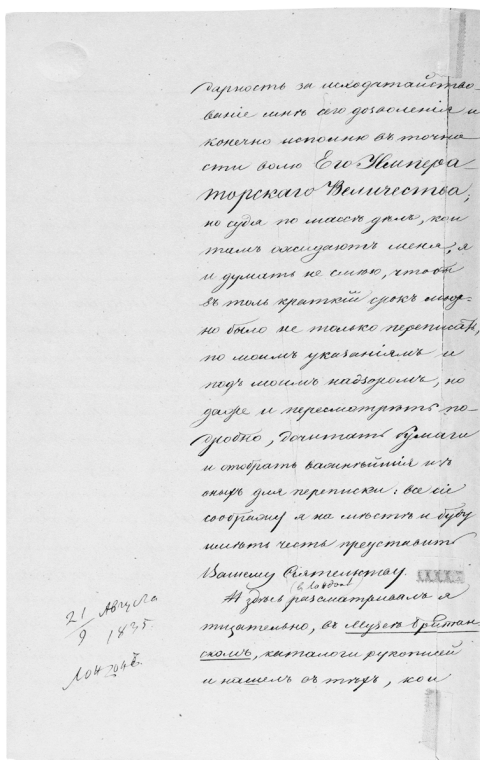 дарность за исходатайство-
ваніе мнѣ сего дозволенія и
конечно исполню въ точно
сти волю Его Импера-
торскаго Величества;
но судя по массѣ дѣлъ, кои
тамъ ожидаютъ меня, я
и думать не смѣю, чтобы
въ толь краткій срокъ мож-
но было не только переписать,
по моимъ указаніямъ и
подъ моимъ надзоромъ, но
даже и пересмотрѣть по-
дробно, дочитать бумаги
и отобрать важнѣйшія изъ
оныхъ для переписки: все сіе
соображу я на мѣстѣ и буду
имѣть честь представить
Вашему Сіятельству.
(въ Лондонѣ)
И здѣсь разсматривалъ я
тщательно, въ Музеѣ Британ
скомъ, каталоги рукописей
и нашелъ въ тѣхъ, кои
21 Августа
9 1835.
Лондонъ